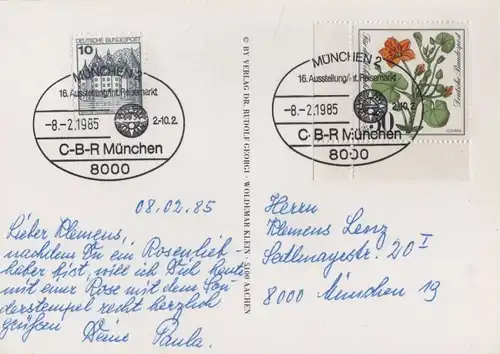 DEUTSCHE BUNDESPOST
10
MÜNCHEN 2
16. Ausstellung/Int. Reisemarkt
-8.-2.1985
2.-10.2.
C-B-R München
8000
© BY VERLAG DR. RUDOLF GEORGI · WOLDEMAR KLEIN · 5100 AACHEN
Deutsche Bundespost
MÜNCHEN 2
16. Ausstellung/Int. Reisemarkt
-8.-2.1985
2.-10.2.
C-B-R München
8000
08.02.85
Lieber Klemens,
nachdem Du ein Rosenlieb-
haber bist, will ich Dich heute
mit einer Rose mit dem Son
derstempel recht herzlich
grüßen
Deine Paula.
Herrn
Klemens Lenz
Sedlmayrstr. 20 I
8000 München 19